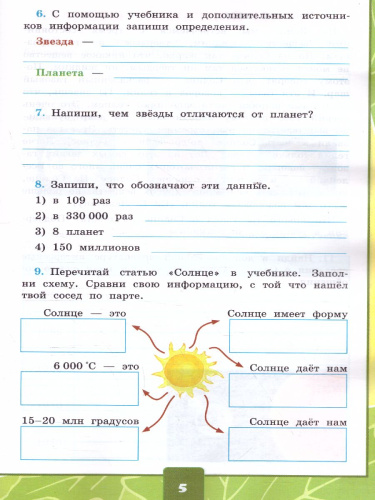 6. С помощью учебника и дополнительных источни-
ков информации запиши определения.
Звезда —
Планета —
7. Напиши, чем звёзды отличаются от планет?
8. Запиши, что обозначают эти данные.
1) в 109 раз
2) в 330 000 раз
3) 8 планет
4) 150 миллионов
9. Перечитай статью «Солнце» в учебнике. Запол-
ни схему. Сравни свою информацию, с той что нашёл
твой сосед по парте.
Солнце — это
Солнце имеет форму
6 000 °С — это
Солнце даёт нам
15—20 млн градусов
Солнце даёт нам
5